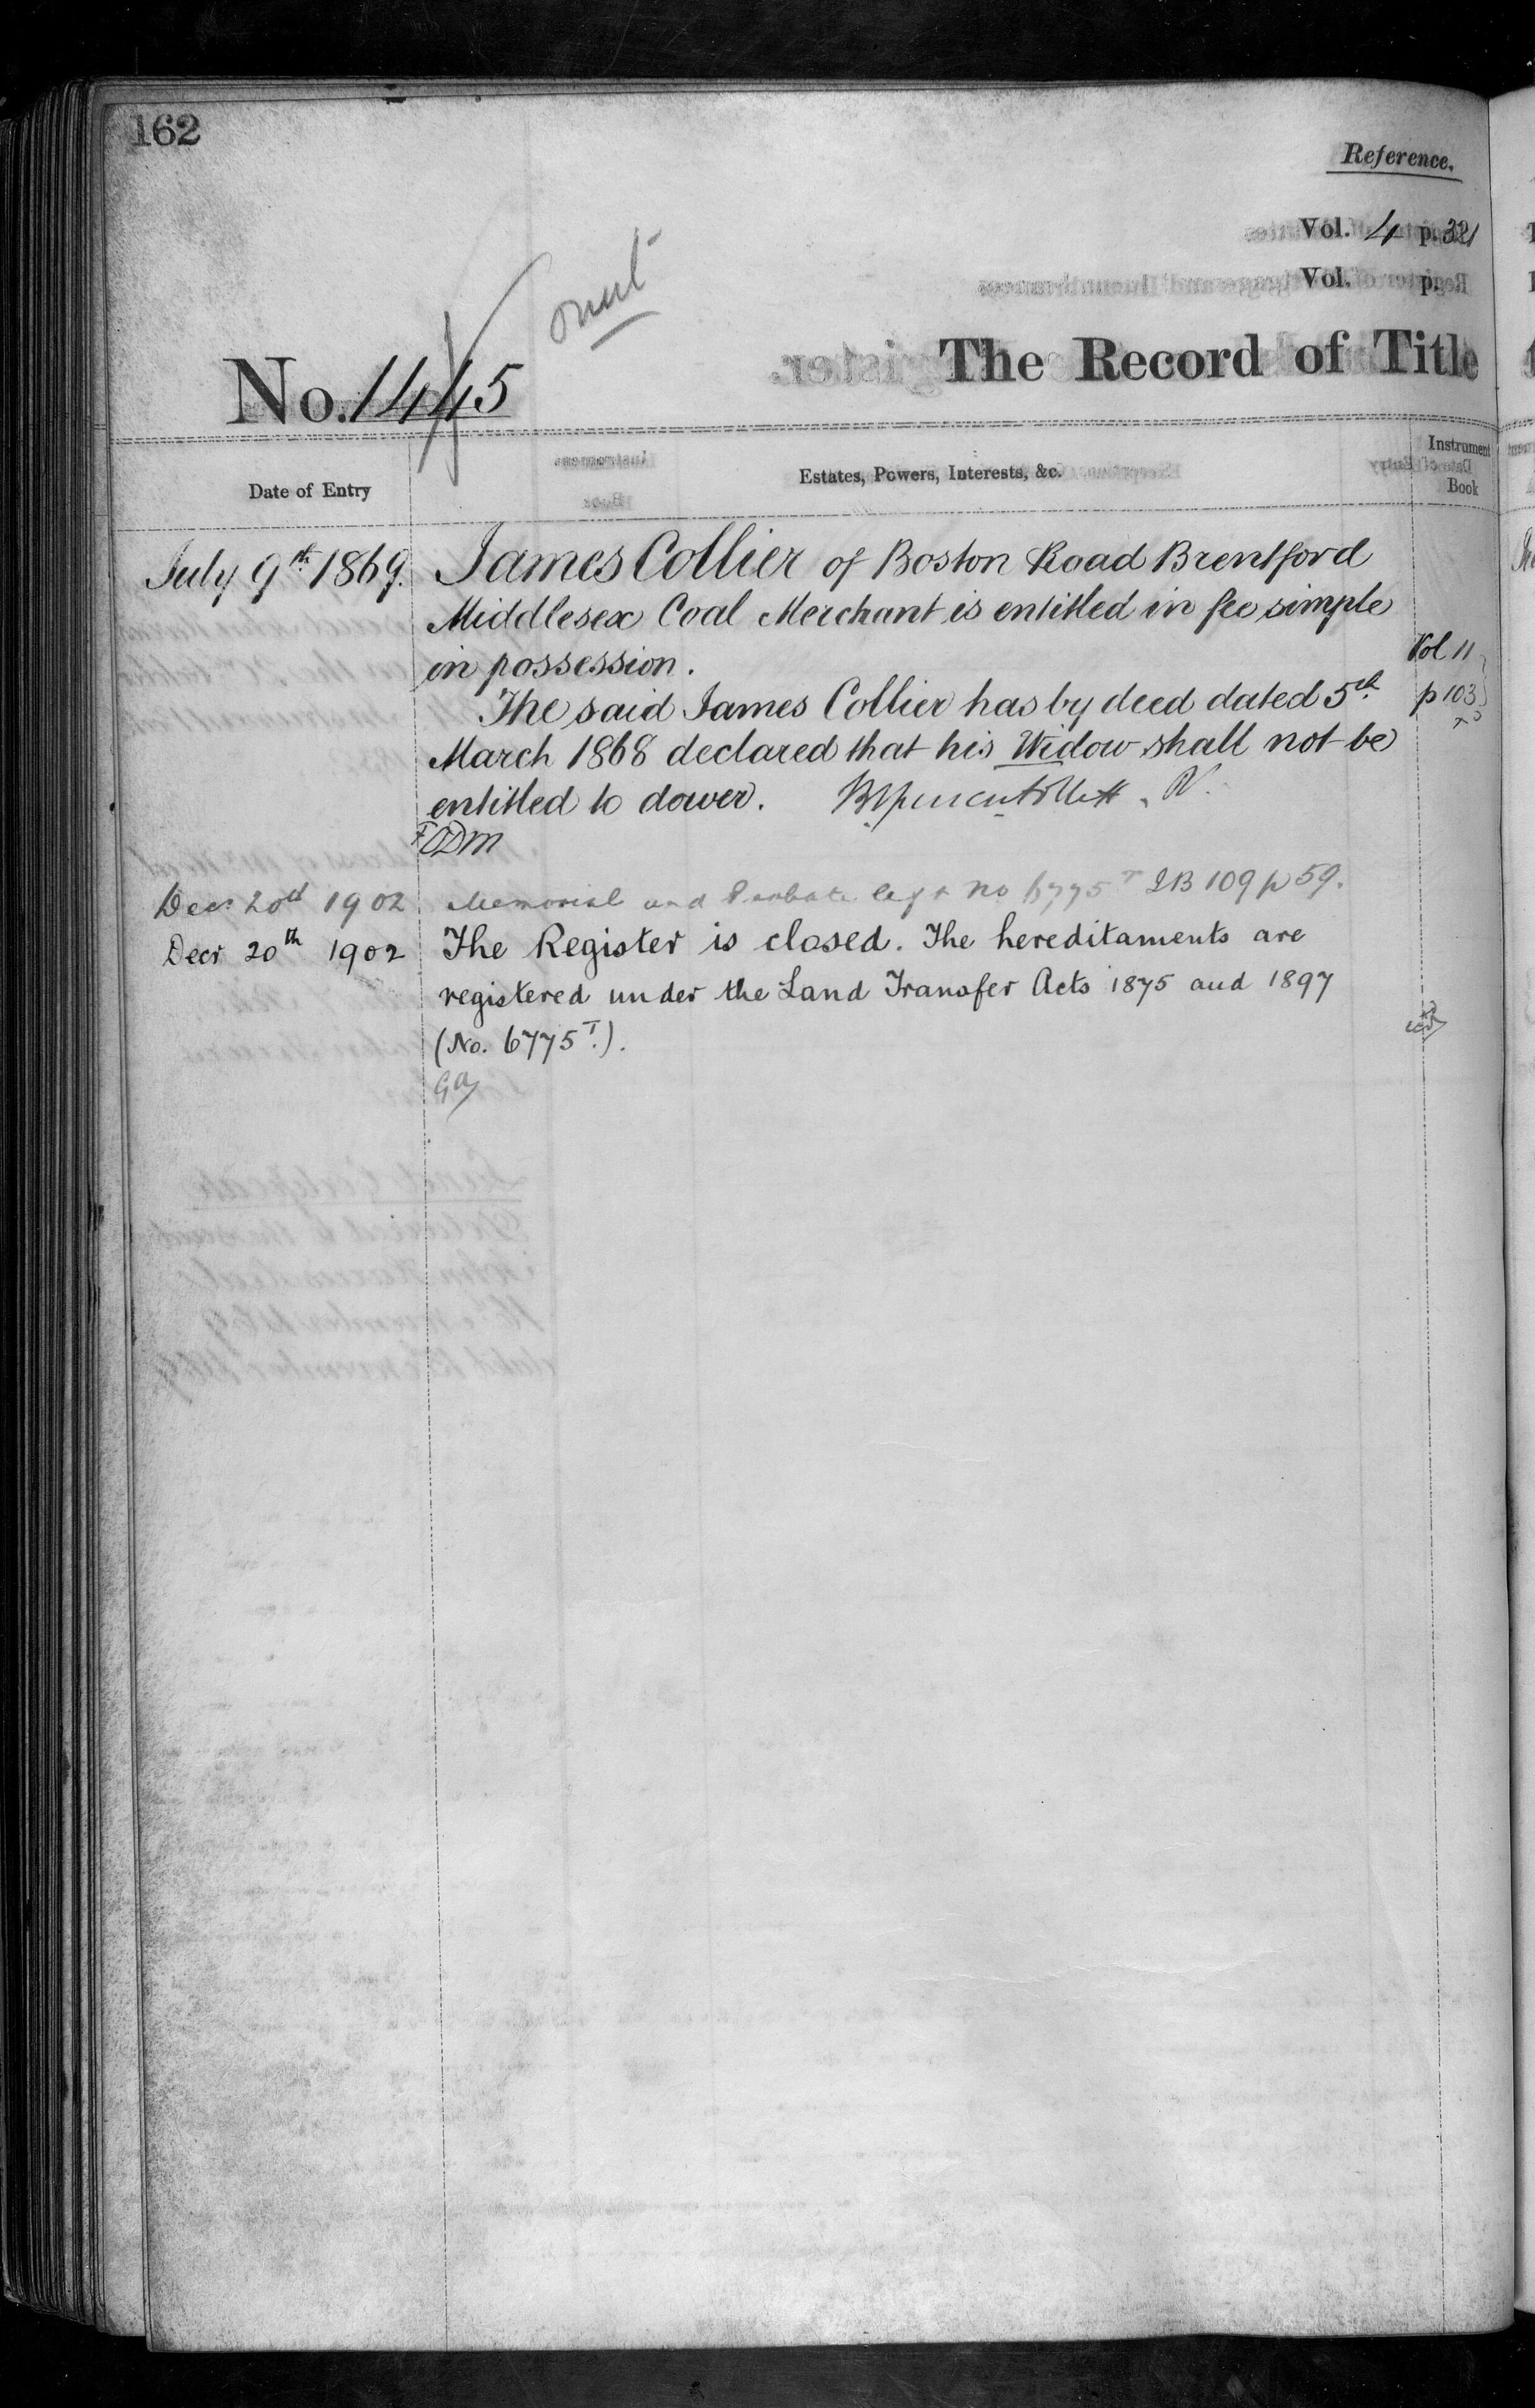 162
Reference.
Vol. 4 p. 321
Vol. p.
No. 1445
The Record of Title
Date of Entry
Estates, Powers, Interests, &c.
Instrument
Book
July 9th 1869. James Collier of Boston Road Brentford
Middlesex Coal Merchant is entitled in fee simple
in possession.
Vol 11
The said James Collier has by deed dated 5th p 103
March 1868 declared that his Widow shall not be
entitled to dower.
Decr 20th 1902 Memorial and Probate No 6775 T IB 109 p 59.
Decr 20th 1902 The Register is closed. The hereditaments are
registered under the Land Transfer Acts 1875 and 1897
(No. 6775 T.).